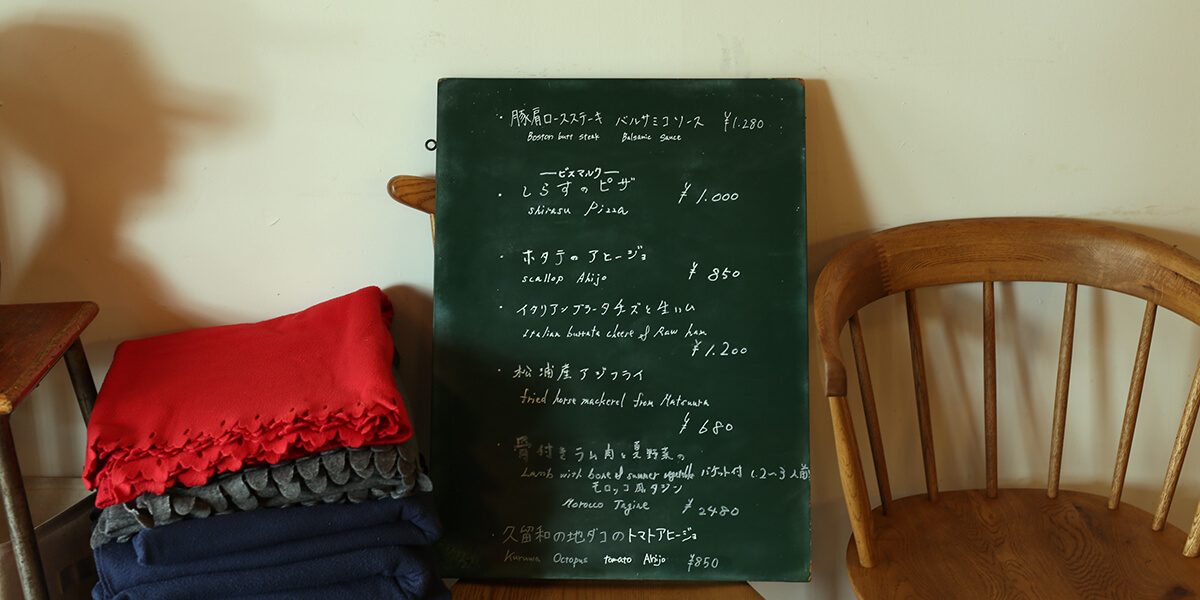 ・豚肩ロースステーキ バルサミコソース ¥1.280
Boston butt steak Balsamic sauce
ービスマルクー
・しらすのピザ ¥1.000
shirasu Pizza
・ホタテのアヒージョ
scallop Ahijo ¥850
・イタリアンブラータチーズと生ハム
Italian burrata cheese & Raw ham
¥1.200
・松浦産アジフライ
fried horse mackerel from Matsuura
¥680
・骨付きラム肉と夏野菜の
Lamb with bone & summer vegetables バゲット付 (2〜3人前)
モロッコ風タジン
Morocco Tagine ¥2480
・久留和の地ダコのトマトアヒージョ
Kuruwa Octopus tomato Ahijo ¥850